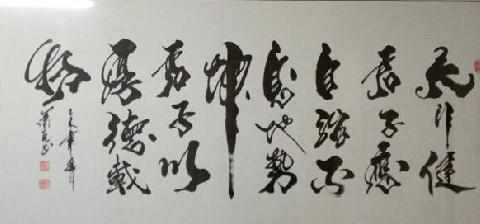 天行健
君子應
自強不
息地勢
坤
君子以
厚德載
物